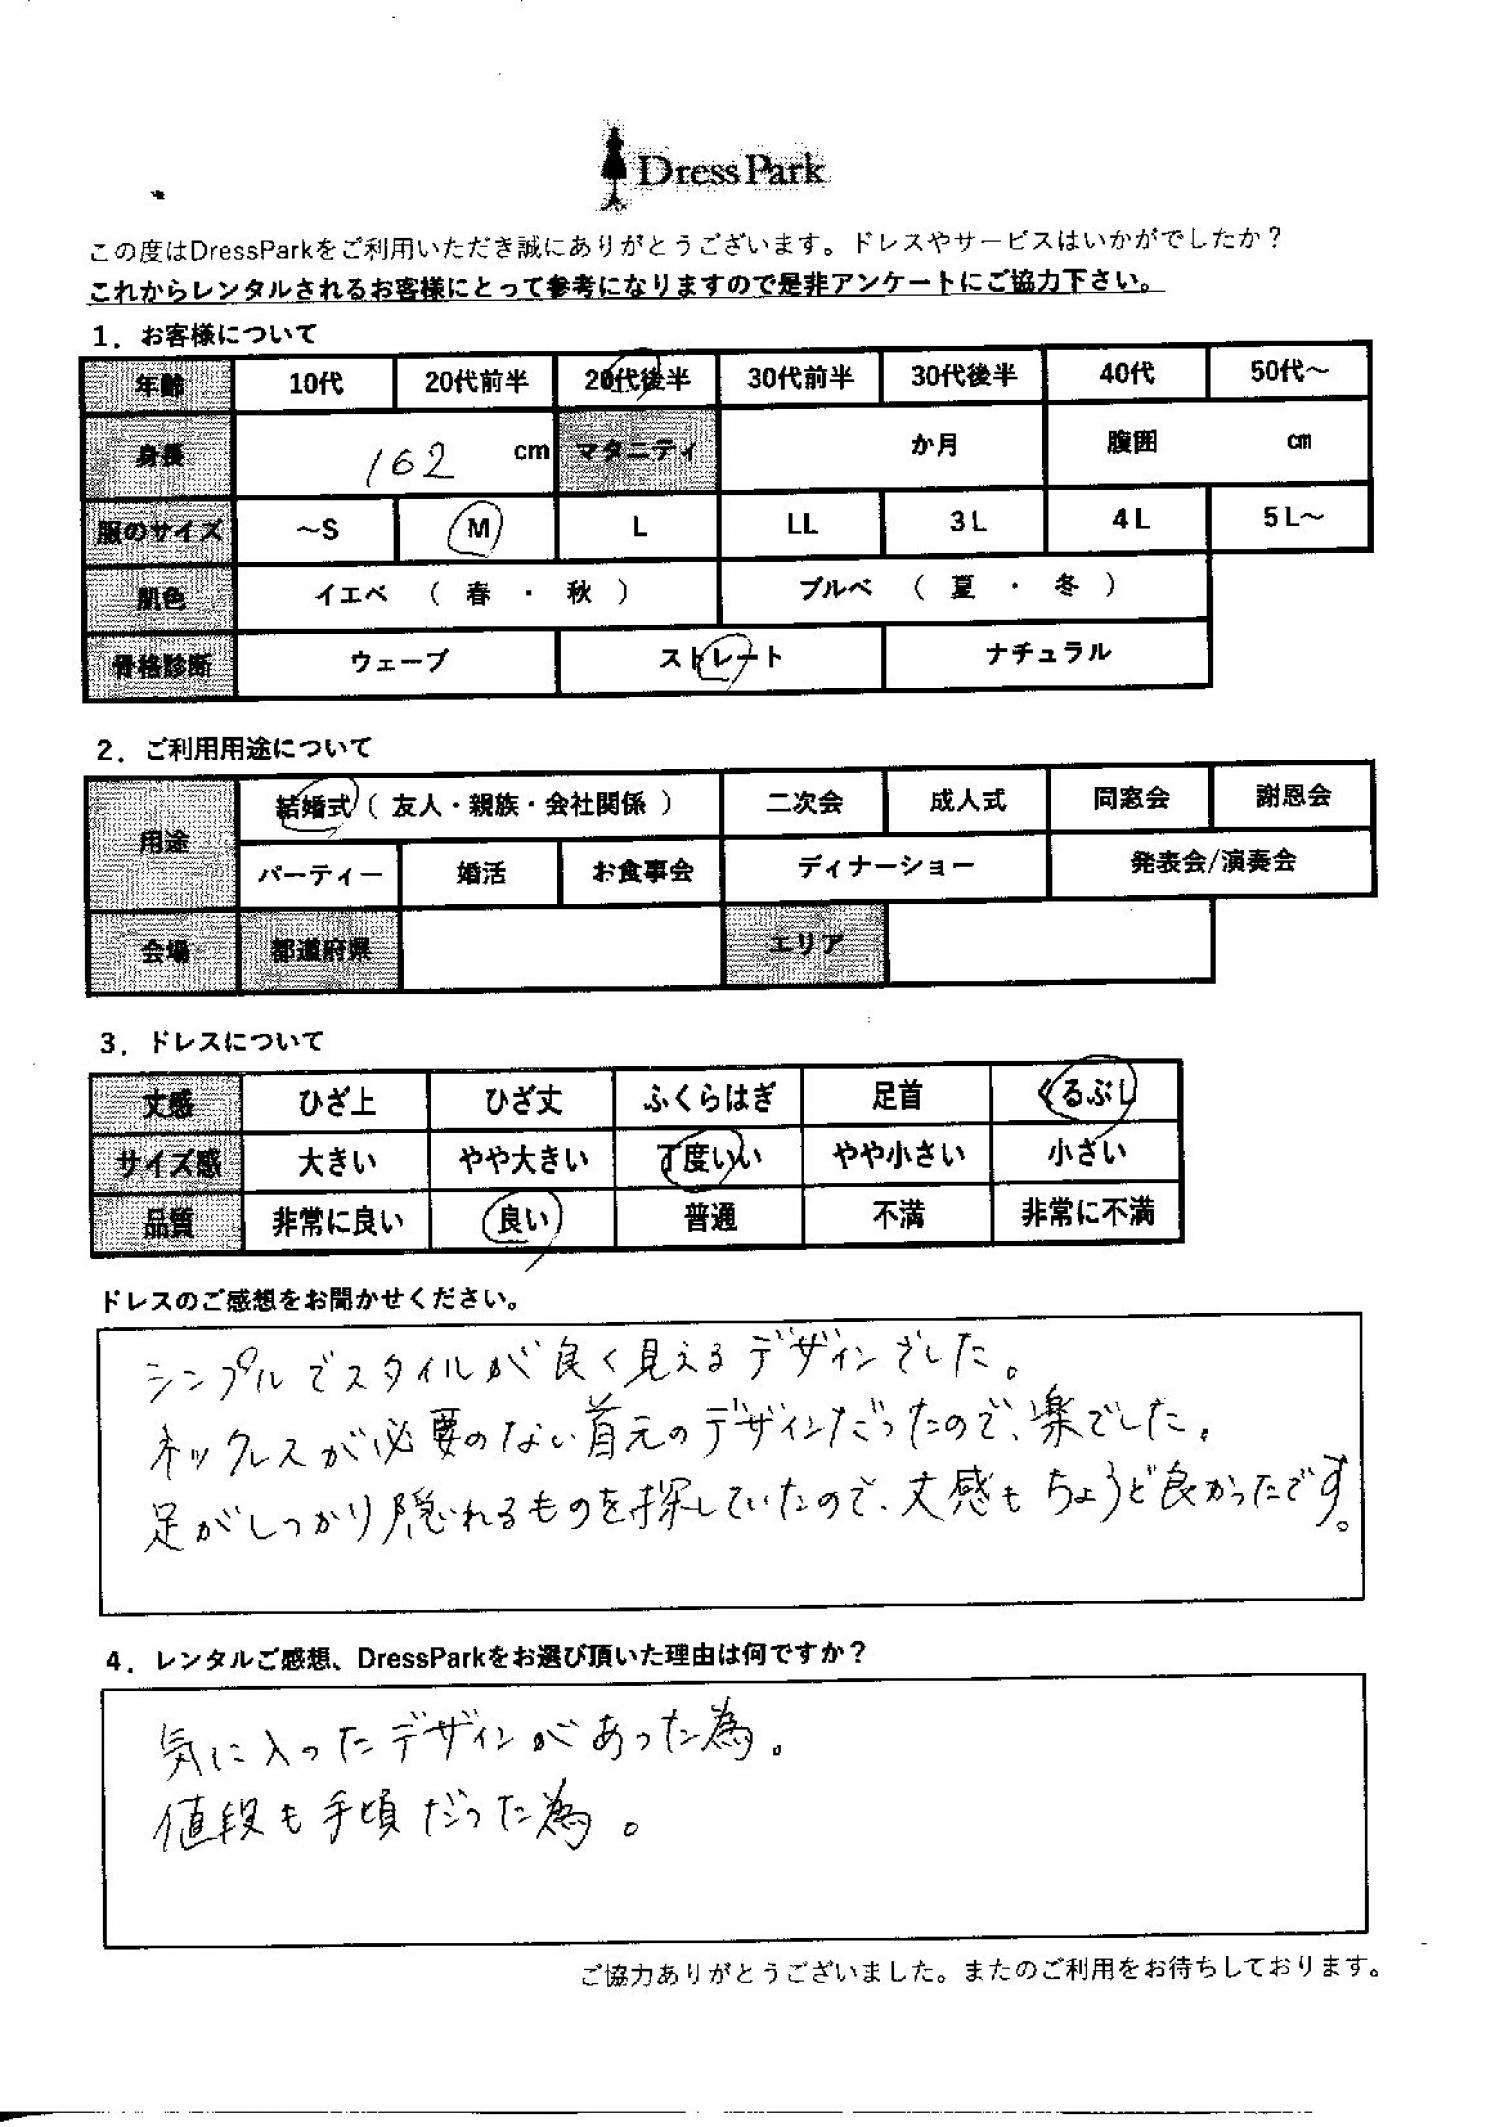 DressPark
この度はDressParkをご利用いただき誠にありがとうございます。ドレスやサービスはいかがでしたか？
これからレンタルされるお客様にとって参考になりますので是非アンケートにご協力下さい。
1．お客様について
年齢 10代 20代前半 20代後半 30代前半 30代後半 40代 50代～
身長 162 cm マタニティ か月 腹囲 cm
服のサイズ ～S M L LL 3L 4L 5L～
肌色 イエベ （ 春 ・ 秋 ） ブルベ （ 夏 ・ 冬 ）
骨格診断 ウェーブ ストレート ナチュラル
2．ご利用用途について
用途 結婚式（ 友人・親族・会社関係 ） 二次会 成人式 同窓会 謝恩会
パーティー 婚活 お食事会 ディナーショー 発表会/演奏会
会場 都道府県 エリア
3．ドレスについて
丈感 ひざ上 ひざ丈 ふくらはぎ 足首 くるぶし
サイズ感 大きい やや大きい 丁度いい やや小さい 小さい
品質 非常に良い 良い 普通 不満 非常に不満
ドレスのご感想をお聞かせください。
シンプルでスタイルが良く見えるデザインでした。
ネックレスが必要のない首元のデザインだったので、楽でした。
足がしっかり隠れるものを探していたので、丈感もちょうど良かったです。
4．レンタルご感想、DressParkをお選び頂いた理由は何ですか？
気に入ったデザインがあった為。
値段も手頃だった為。
ご協力ありがとうございました。またのご利用をお待ちしております。